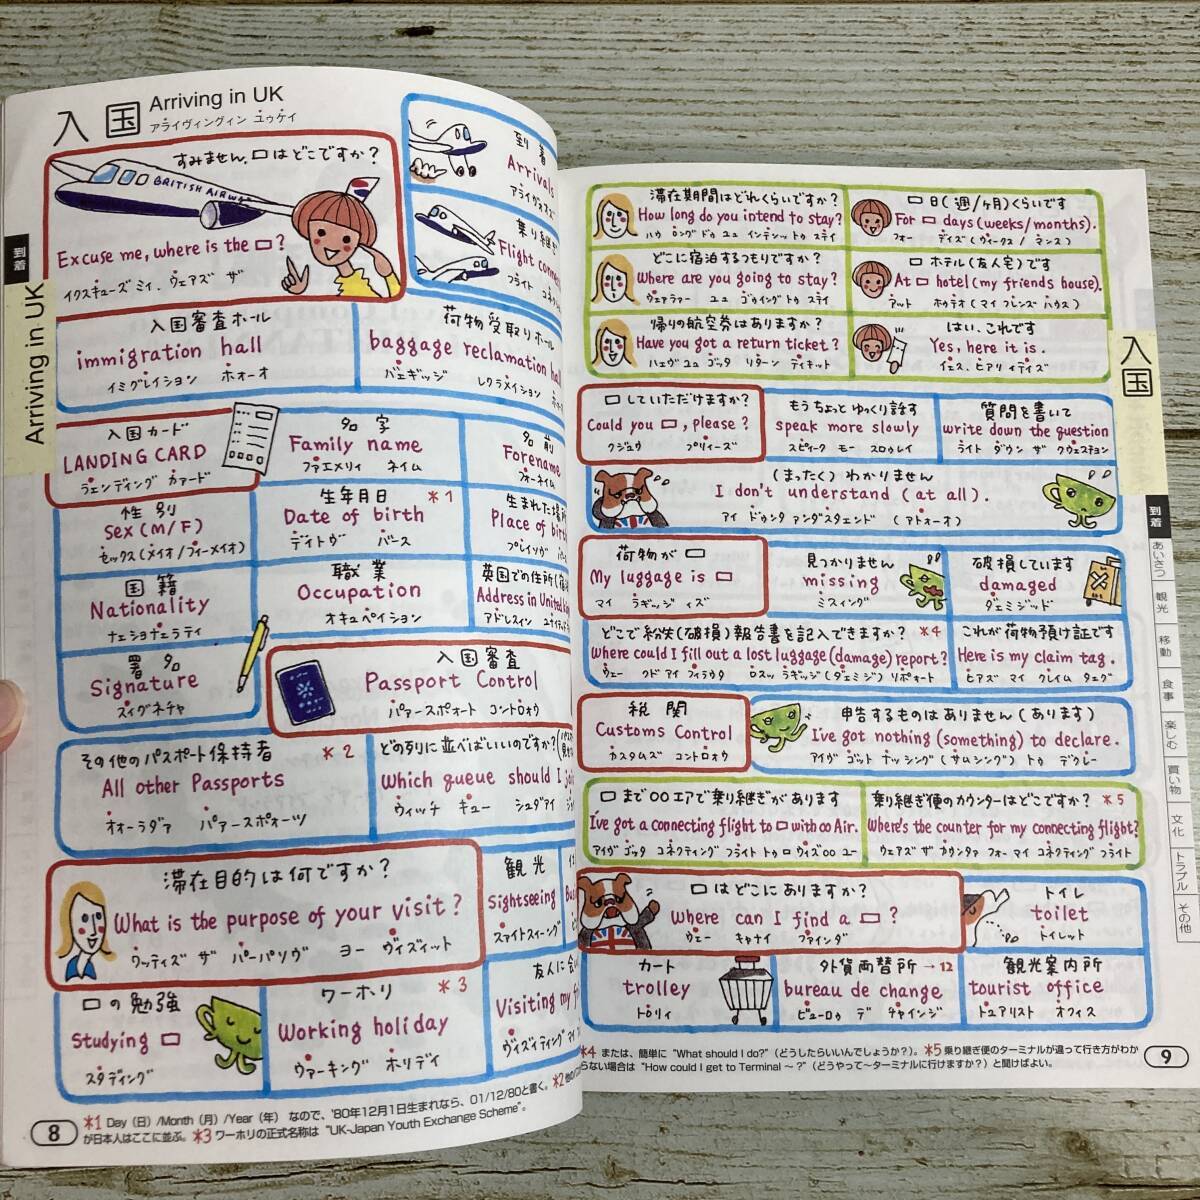 入国 Arriving in UK
アライヴィングィン ユゥケイ
到着
Arriving in UK
すみません、□はどこですか？
BRITISH AIRW
Excuse me, where is the □?
イクスキューズ ミィ、ウェアズ ザ
到着
Arrivals
アライヴォズ
乗り継ぎ
Flight conne
フライト コネク
入国審査ホール
immigration hall
イミグレイション ホォーオ
荷物受取りホール
baggage reclamation hall
バェギッジ レクラメイション
入国カード
LANDING CARD
ラェンディング カァード
名字
Family name
ファエメリィ ネイム
名前
Forename
フォーネイム
性別
Sex (M/F)
セックス (メイオ/フィーメイオ)
生年月日 *1
Date of birth
デイトヴ バース
生まれた場所
Place of birth
プレイソヴ
国籍
Nationality
ナェショナェラティ
職業
Occupation
オキュペイション
英国での住所
Address in United
アドレスイン ユナイテッド
署名
Signature
スィグネチャ
入国審査
Passport Control
パァースポォート コントロォウ
その他のパスポート保持者 *2
All other Passports
オォーラダァ パァースポォーツ
どの列に並べばいいのですか？
Which queue should I
ウィッチ キュー シュダアイ
滞在目的は何ですか？
What is the purpose of your visit?
ワッティズ ザ パーパソヴ ヨー ヴィズィット
観光
Sightseeing
スァイトスィーング
□の勉強
Studying □
スタディング
ワーホリ *3
Working holiday
ワァーキング ホリデイ
友人に会い
Visiting my
ヴィズィティング マイ
*1 Day（日）/Month（月）/Year（年）なので、'80年12月1日生まれなら、01/12/80と書く。*2
が日本人はここに並ぶ。*3 ワーホリの正式名称は "UK-Japan Youth Exchange Scheme"。
8
滞在期間はどれくらいですか？
How long do you intend to stay?
ハウ ロング ドゥ ユュ インテンットゥ ステイ
□日(週/ヶ月)くらいです
For □ days (weeks/months).
フォー デイズ (ウィークス / マンス)
どこに宿泊するつもりですか？
Where are you going to stay?
ウェアラァー ユュ ゴゥイングトゥ ステイ
□ホテル(友人宅)です
At □ hotel (my friends house).
アット ホゥテオ (マイ フレンズ ハウス)
帰りの航空券はありますか？
Have you got a return ticket?
ハェヴ ユュ ゴッタ リターン ティキット
はい、これです
Yes, here it is.
イエス、ヒアリィティズ
□していただけますか？
Could you □, please?
クジュウ プリィーズ
もうちょっとゆっくり話す
speak more slowly
スピィーク モー スロゥレイ
質問を書いて
write down the question
ライト ダウン ザ クウェスチョン
(まったく)わかりません
I don't understand (at all).
アイ ドゥンタ ァンダスタェンド (アトォーオ)
荷物が□
My luggage is □
マイ ラギッジ ィズ
見つかりません
missing
ミスィング
破損しています
damaged
ダェミジッド
どこで紛失(破損)報告書を記入できますか？ *4
Where could I fill out a lost luggage (damage) report?
ウェー クド アイ フィラウタ ロスッ ラギッジ (ダェミジ) リポォート
これが荷物預け証です
Here is my claim tag.
ヒアズ マイ クレイム タェグ
税関
Customs Control
カスタムズ コントロォウ
申告するものはありません(あります)
I've got nothing (something) to declare.
アイヴ ゴット ナッシング (サムシング) トゥ デクレー
□まで○○エアで乗り継ぎがあります
I've got a connecting flight to □ with ∞ Air.
アイヴ ゴッタ コネクティング フライト トゥ □ ウィズ ○○ エー
乗り継ぎ便のカウンターはどこですか？ *5
Where's the counter for my connecting flight?
ウェアズ ザ カウンタァ フォー マイ コネクティング フライト
□はどこにありますか？
Where can I find a □?
ウェー キャナイ ファインダ
トイレ
toilet
トイレット
カート
trolley
トロリィ
外貨両替所 →12
bureau de change
ビューロゥ デ チャインジ
観光案内所
tourist office
トュアリスト オフィス
*4 または、簡単に "What should I do?"（どうしたらいいんでしょうか？）。*5 乗り継ぎ便のターミナルが違って行き方がわか
らない場合は "How could I get to Terminal ～？"（どうやって～ターミナルに行けますか？）と聞けばよい。
9
入国
到着
あいさつ
観光
移動
食事
楽しむ
買い物
文化
トラブル
その他